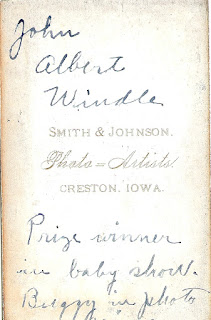 John
Albert
Windle
SMITH & JOHNSON.
Photo=Artists
CRESTON, IOWA.
Prize winner
in baby show.
Buggy in photo